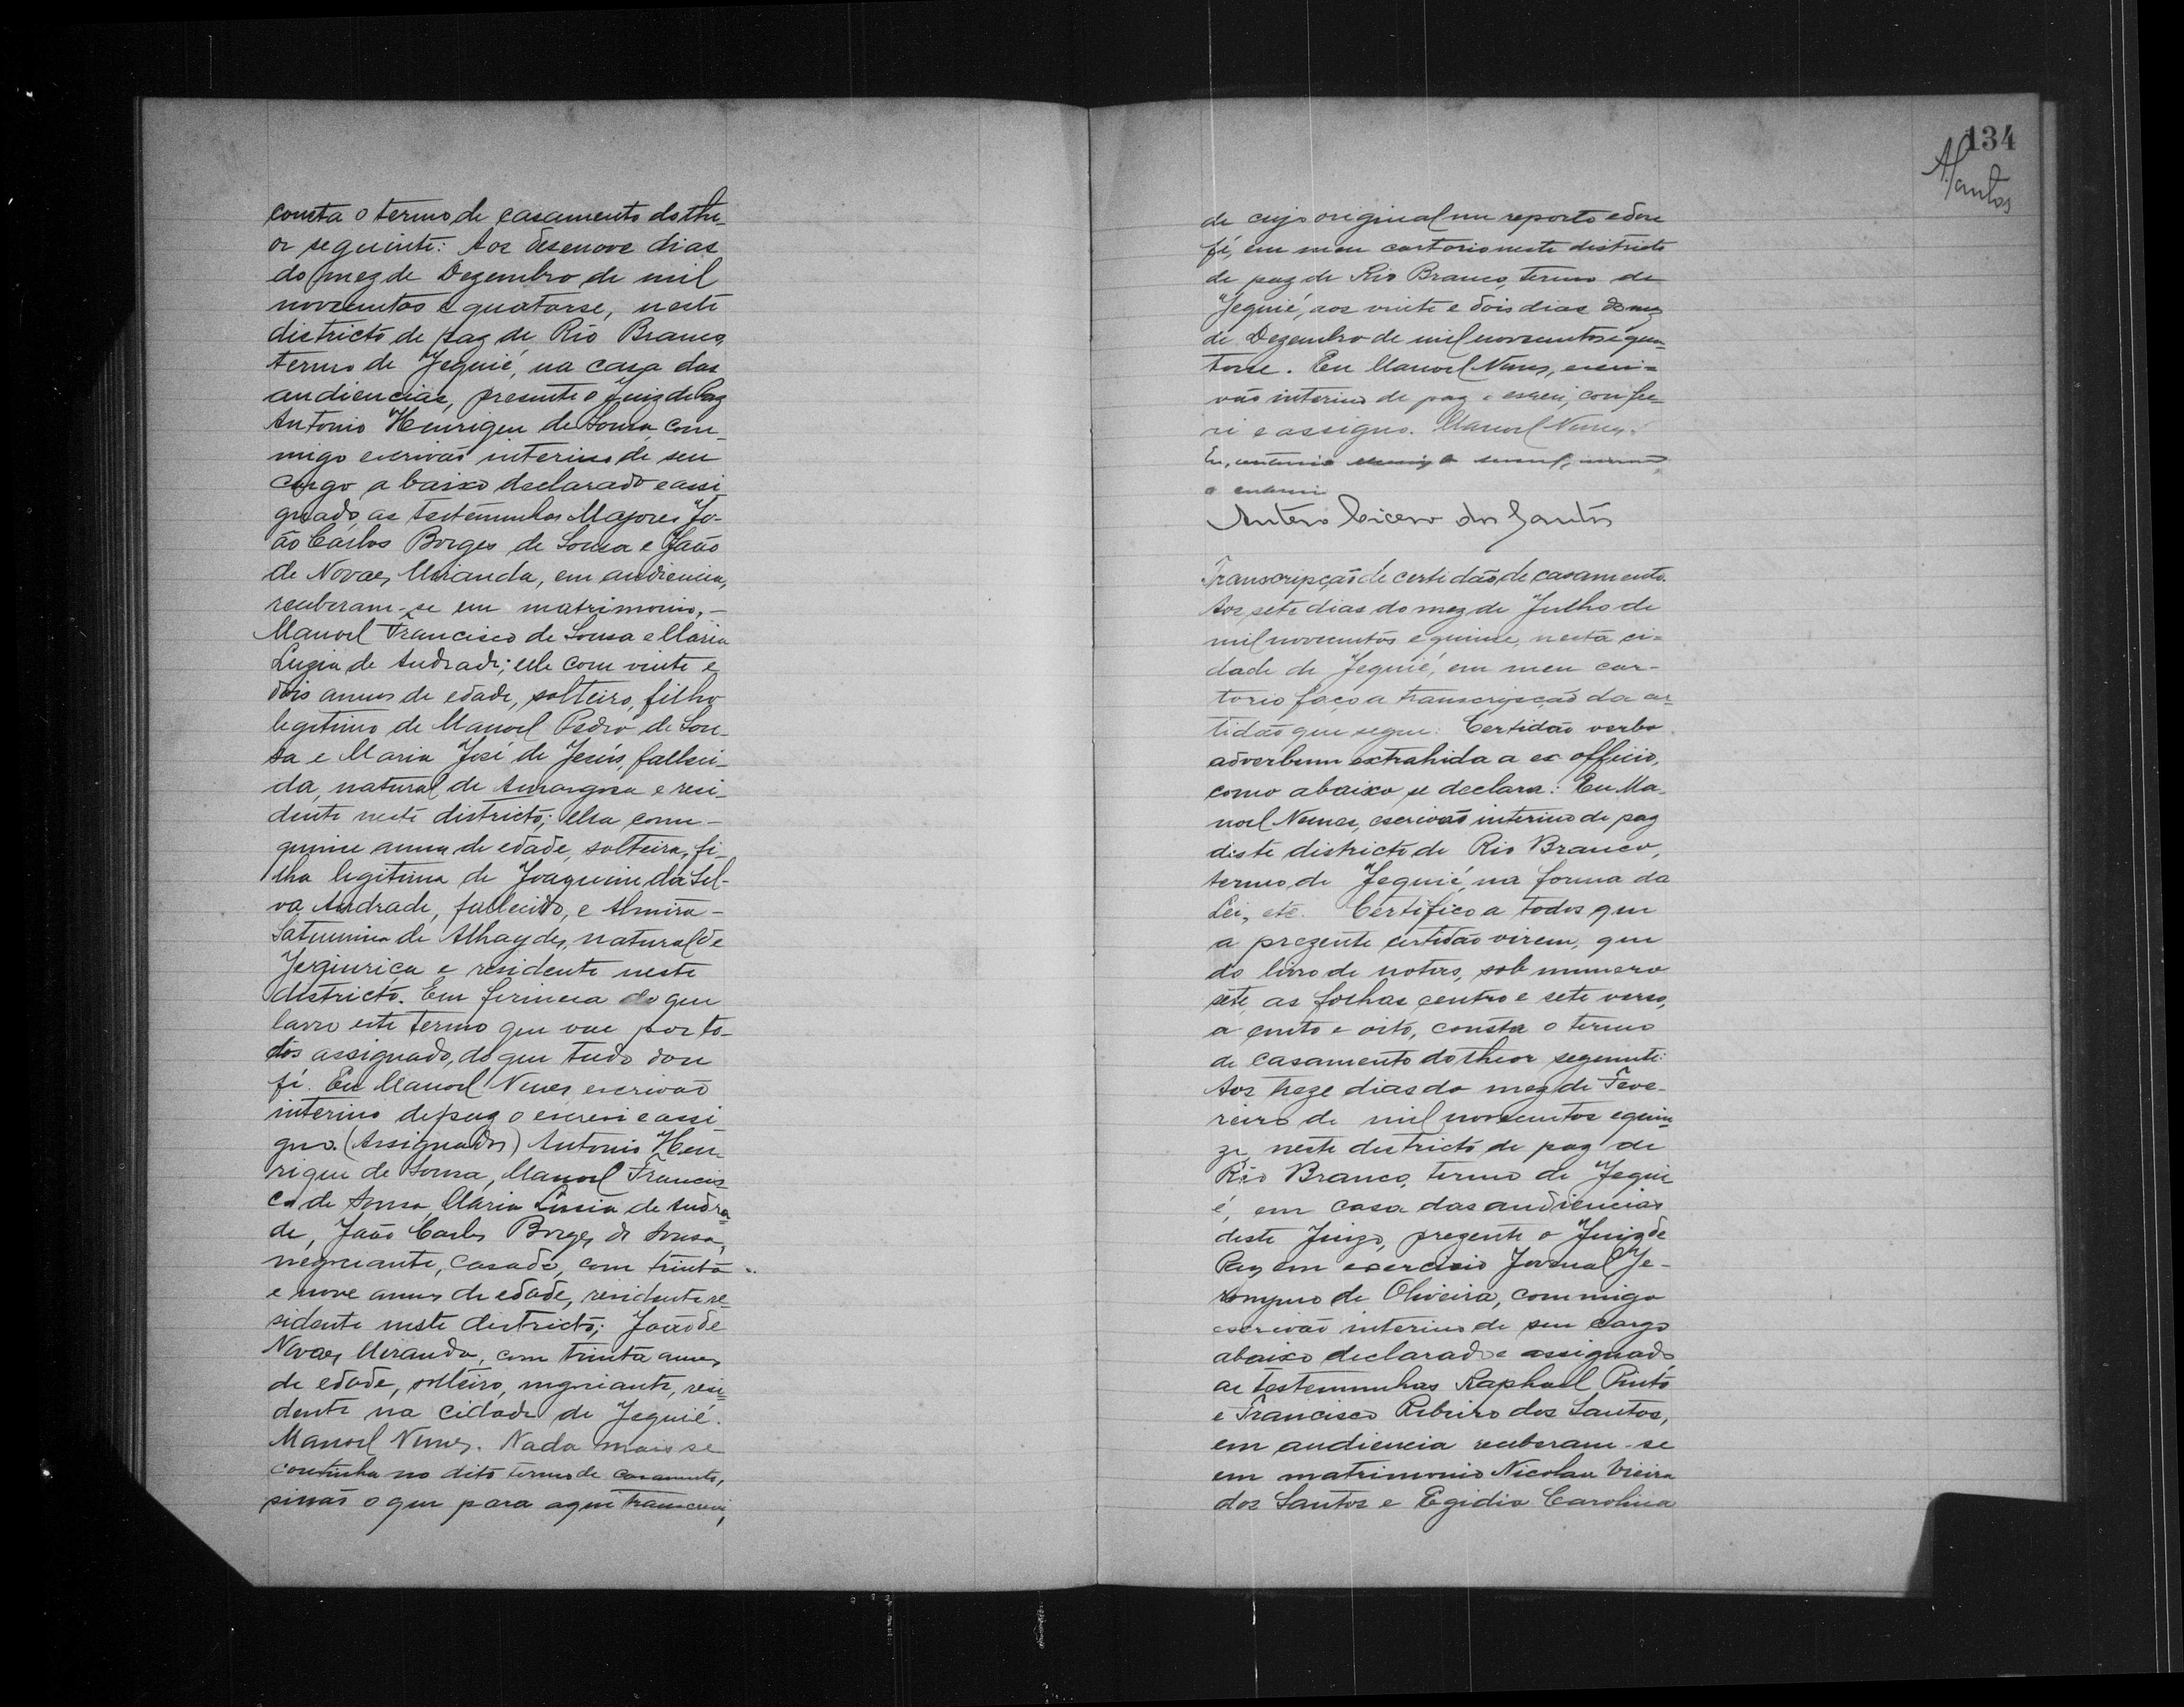 consta o termo de casamento do the-
or seguinte: Aos desenove dias
do mez de Dezembro de mil
novecentos e quatorse, neste
districto de paz de Rio Branco,
termo de Jequié, na casa das
audiencias, presente o Juiz de Paz
Antonio Henrique de Sousa, com-
migo escrivão interino de seu
cargo, abaixo declarado e assi-
gnado, as testemunhas Majores Jo-
ão Carlos Borges de Sousa e João
de Novaes Miranda, em audiencia,
receberam-se em matrimonio,-
Manoel Francisco de Sousa e Maria
Luzia de Andrade; elle com vinte e
dois annos de edade, solteiro, filho
legitimo de Manoel Pedro de Sou-
sa e Maria José de Jesús, falleci-
da, natural de Amargosa e resi-
dente neste districto; ella com-
quinse annos de edade, solteira, fi-
lha legitima de Joaquim da Sil-
va Andrade, fallecido, e Almira-
Saturnina de Athaydes, natural de
e residente neste
districto. Em firmesa do que
lavro este termo que vae por to-
dos assignado, do que tudo dou
fé. Eu Manoel Nunes escrivão
interino de paz o escrevi e assi-
gno. (Assignados) Antonio Hen-
rique de Sousa, Manoel Francis-
co de Sousa, Maria Lusia de Andra-
de, João Carlos Borges de Sousa,
negociante, casado, com trinta
e nove annos de edade, residente re-
sidente neste districto; João de
Novaes Miranda, com trinta annos
de edade, solteiro, negociante, resi-
dente na cidade de Jequié.
Manoel Nunes. Nada mais se
continha no dito termo de casamento,
sinão o que para aqui transcrevi,
134
ASantos
de cujo original me reporto e dou
fé, em meu cartorio neste districto
de paz de Rio Branco, termo de
Jequié, aos vinte e dois dias do mez
de Dezembro de mil novecentos e qua-
torse. Eu Manoel Nunes, escri-
vão interino de paz o escrevi, confe-
ri e assigno. Manoel Nunes.
o escrevi
Antero Cicero dos Santos
Transcripção de certidão de casamento.
Aos sete dias do mez de Julho de
mil novecentos e quinse, nesta ci-
dade de Jequié, em meu car-
torio faço a transcripção da cer-
tidão que segue: Certidão verbo
adverbum extrahida a ex officio,
como abaixo se declara: Eu Ma-
noel Nunes, escrivão interino de paz
deste districto de Rio Branco,
termo de Jequié, na forma da
Lei, etc. Certifico a todos que
a prezente certidão virem, que
do livro de notas, sob numero
sete, as folhas centro e sete verso,
a cento e oito, consta o termo
de casamento do theor seguinte:
Aos treze dias do mez de Feve-
reiro de mil novecentos e quin-
ze, neste districto de paz de
Rio Branco, termo de Jequi-
é, em casa das audiencias
deste Juizo, prezente o Juiz de
Paz em exercicio Juvenal Je-
ronymo de Oliveira, commigo
escrivão interino de seu cargo
abaixo declarado e assignado,
as testemunhas Raphael Pinto
e Francisco Ribeiro dos Santos,
em audiencia receberam-se
em matrimonio Nicolau Vieira
dos Santos e Egidia Carolina